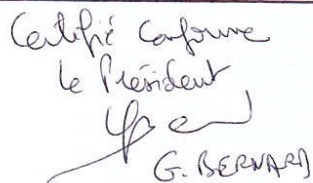 Certifié Conforme
Le Président
G. BERNARD